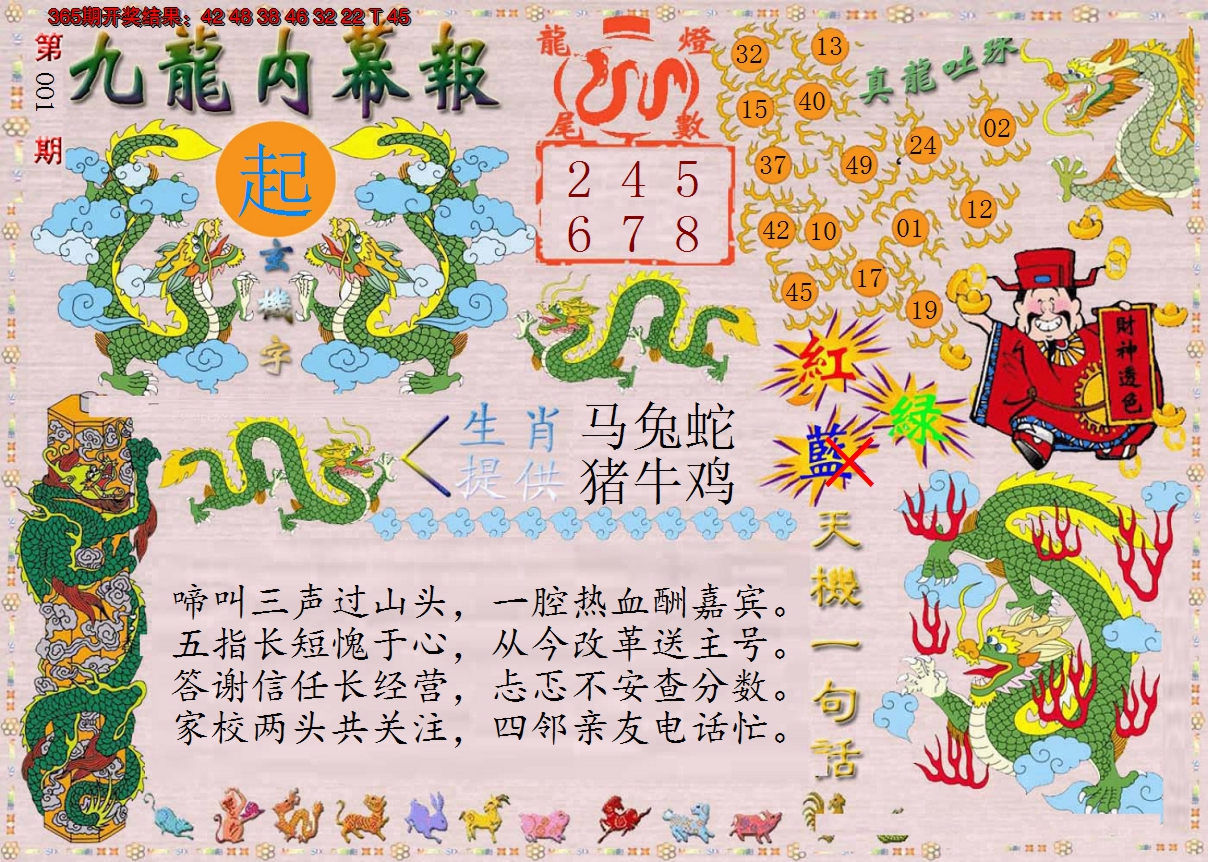 365期开奖结果：42 48 38 46 32 22 T 45
第001期
九龍内幕報
起
玄機字
龍燈
尾數
2 4 5
6 7 8
真龍吐珠
32
13
15
40
24
02
37
49
42
10
01
12
45
17
19
財神透色
紅
綠
藍
生肖提供
马兔蛇
猪牛鸡
天機一句话
啼叫三声过山头，一腔热血酬嘉宾。
五指长短愧于心，从今改革送主号。
答谢信任长经营，忐忑不安查分数。
家校两头共关注，四邻亲友电话忙。